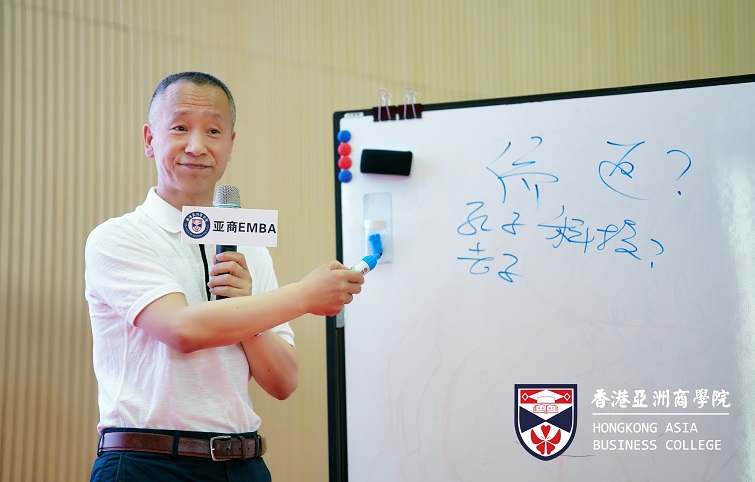 亚商EMBA
孔子 科技?
老子
香港亞洲商學院
HONGKONG ASIA
BUSINESS COLLEGE